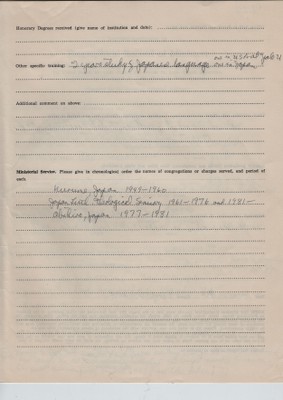 Honorary Degrees received (give name of institution and date):
Other specific training: 2 years Study of Japanese Language one in
one in Japan
Additional comment on above:
Ministerial Service. Please give in chronological order the names of congregations or charges served, and period of
each.
Japan 1949-1960
Japan Theological Seminary 1961-1976 and 1981-
Abiko, Japan 1977-1981